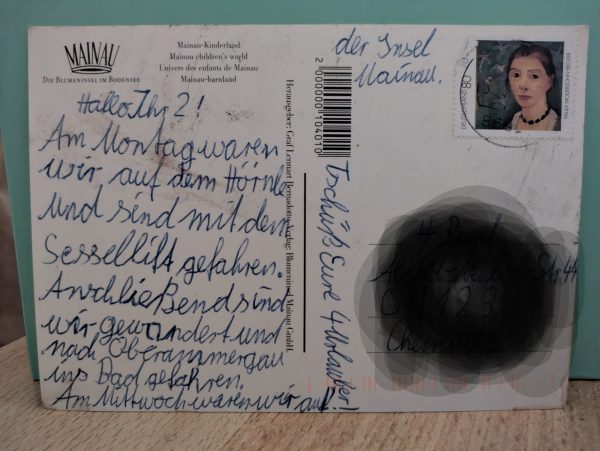 MAINAU
DIE BLUMENINSEL IM BODENSEE
Mainau-Kinderland
Mainau children's world
Univers des enfants de Mainau
Mainau-barnland
Hallo Ihr 2!
Am Montag waren
wir auf dem Hörnle
und sind mit dem
Sessellift gefahren.
Anschließend sind
wir gewandert und
nach Oberammergau
ins Bad gefahren.
Am Mittwoch waren wir auf
der Insel
Mainau.
Tschüß Eure 4 Urlauber!
Herausgeber: Graf Lennart Bernadotte Verlag: Blumeninsel Mainau GmbH.
2 000000 104010
DEUTSCHLAND 80
PAULA MODERSOHN-BECKER